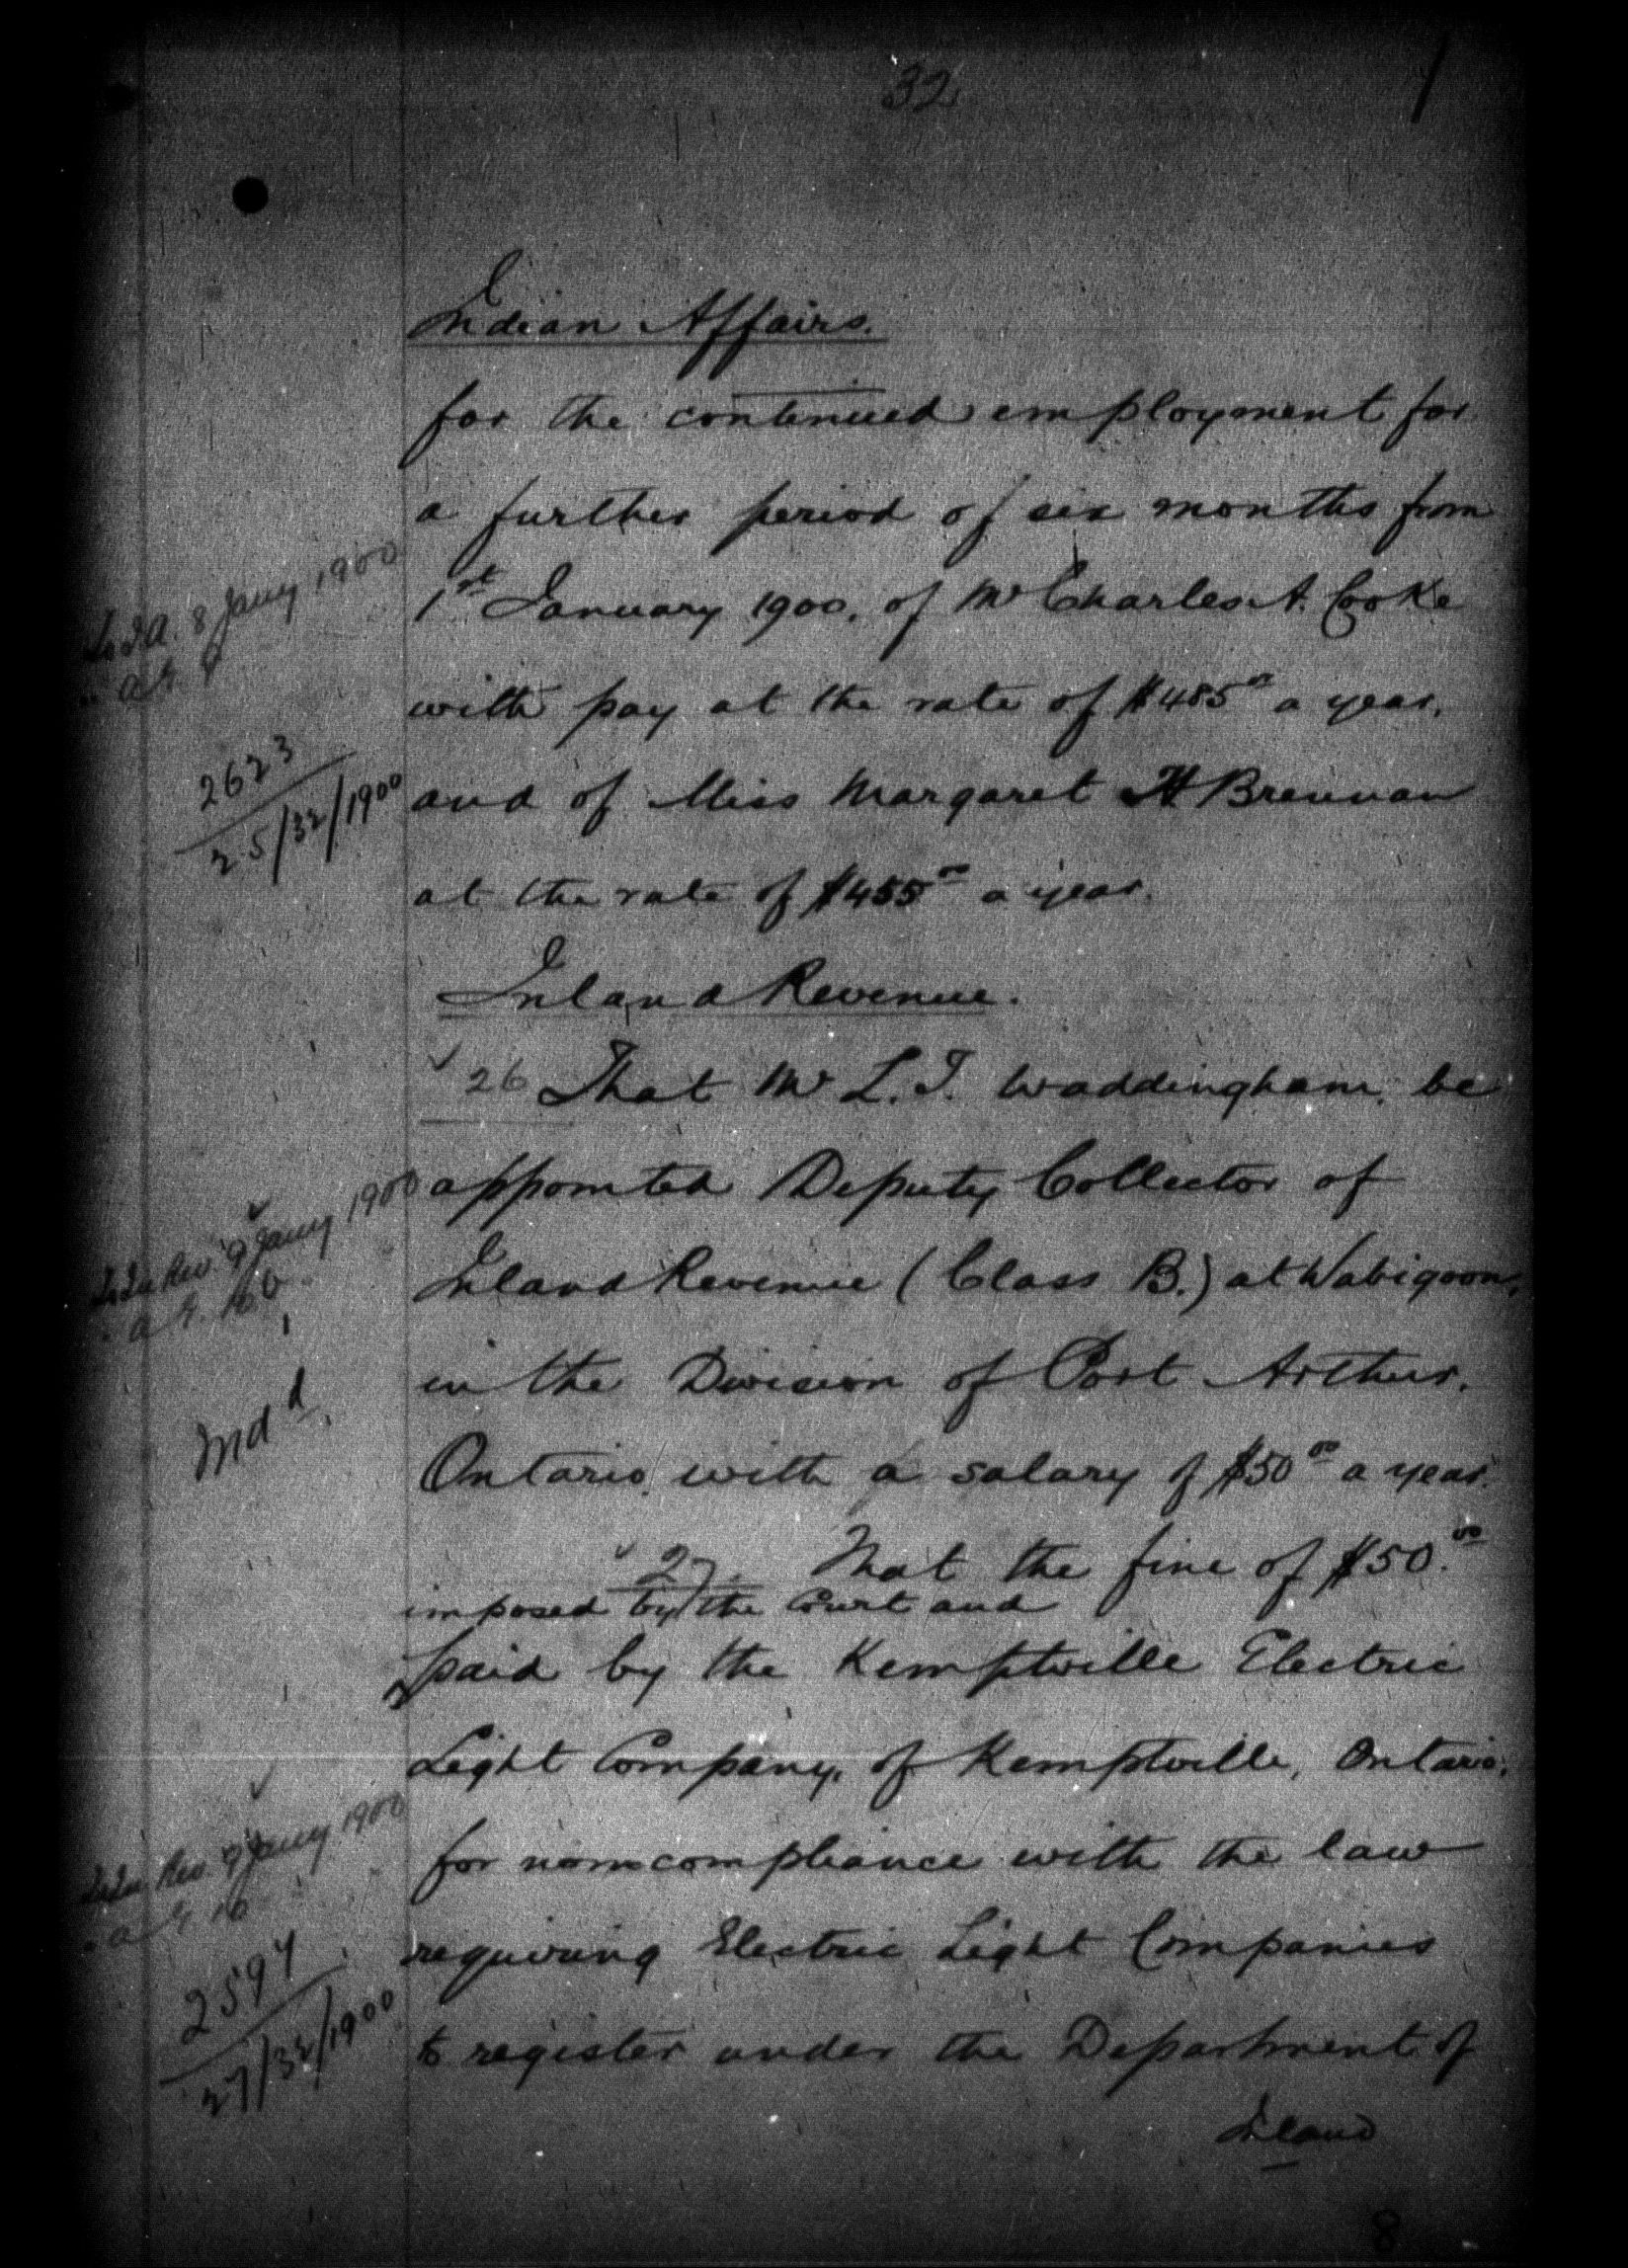 32
Indian Affairs.
for the continued employment for
a further period of six months from
1st January 1900, of Mr Charles A. Cooke
with pay at the rate of $485 00 a year,
and of Miss Margaret H Brennan
at the rate of $455 00 a year.
To I.A. 8 Jany 1900
" A.G. 9
2623
25/32/1900
Inland Revenue.
26 That Mr L. T. Waddingham, be
appointed Deputy Collector of
Inland Revenue (Class B.) at Wabigoon,
in the Division of Port Arthur,
Ontario, with a salary of $50 00 a year.
To In Rev. 9 Jany 1900
" A.G. 10
27. That the fine of $50.00
imposed by the Court and
paid by the Kemptville Electric
Light Company, of Kemptville, Ontario,
for non compliance with the law
requiring Electric Light Companies
to register under the Department of
To In Rev. 9 Jany 1900
" A.G. 10
2594
27/32/1900
Inland
8